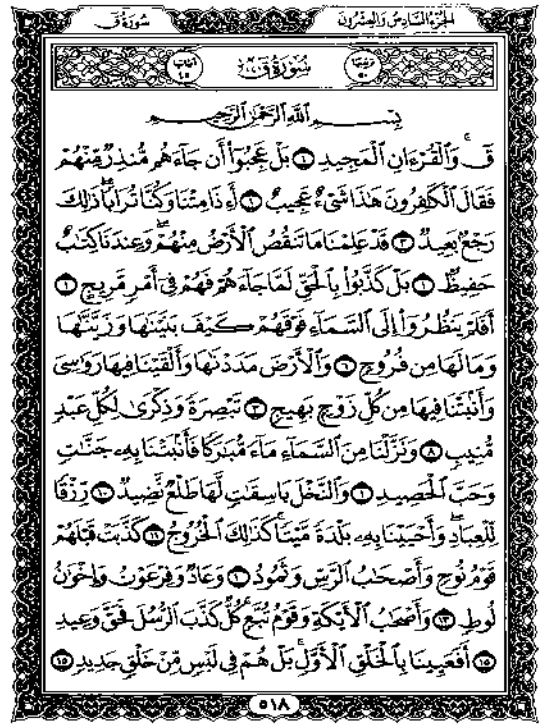 الجزء السادس والعشرون
سورة ق
ترتيبها ٥٠
سورة ق
آياتها ٤٥
بسم الله الرحمن الرحيم
قٓ ۚ وَٱلْقُرْءَانِ ٱلْمَجِيدِ ۝١ بَلْ عَجِبُوٓا۟ أَن جَآءَهُم مُّنذِرٌ مِّنْهُمْ
فَقَالَ ٱلْكَٰفِرُونَ هَٰذَا شَىْءٌ عَجِيبٌ ۝٢ أَءِذَا مِتْنَا وَكُنَّا تُرَابًا ۖ ذَٰلِكَ
رَجْعٌۢ بَعِيدٌ ۝٣ قَدْ عَلِمْنَا مَا تَنقُصُ ٱلْأَرْضُ مِنْهُمْ ۖ وَعِندَنَا كِتَٰبٌ
حَفِيظٌۢ ۝٤ بَلْ كَذَّبُوا۟ بِٱلْحَقِّ لَمَّا جَآءَهُمْ فَهُمْ فِىٓ أَمْرٍ مَّرِيجٍ ۝٥
أَفَلَمْ يَنظُرُوٓا۟ إِلَى ٱلسَّمَآءِ فَوْقَهُمْ كَيْفَ بَنَيْنَٰهَا وَزَيَّنَّٰهَا
وَمَا لَهَا مِن فُرُوجٍ ۝٦ وَٱلْأَرْضَ مَدَدْنَٰهَا وَأَلْقَيْنَا فِيهَا رَوَٰسِىَ
وَأَنۢبَتْنَا فِيهَا مِن كُلِّ زَوْجٍۭ بَهِيجٍ ۝٧ تَبْصِرَةً وَذِكْرَىٰ لِكُلِّ عَبْدٍ
مُّنِيبٍ ۝٨ وَنَزَّلْنَا مِنَ ٱلسَّمَآءِ مَآءً مُّبَٰرَكًا فَأَنۢبَتْنَا بِهِۦ جَنَّٰتٍ
وَحَبَّ ٱلْحَصِيدِ ۝٩ وَٱلنَّخْلَ بَاسِقَٰتٍ لَّهَا طَلْعٌ نَّضِيدٌ ۝١٠ رِّزْقًا
لِّلْعِبَادِ ۖ وَأَحْيَيْنَا بِهِۦ بَلْدَةً مَّيْتًا ۚ كَذَٰلِكَ ٱلْخُرُوجُ ۝١١ كَذَّبَتْ قَبْلَهُمْ
قَوْمُ نُوحٍ وَأَصْحَٰبُ ٱلرَّسِّ وَثَمُودُ ۝١٢ وَعَادٌ وَفِرْعَوْنُ وَإِخْوَٰنُ
لُوطٍ ۝١٣ وَأَصْحَٰبُ ٱلْأَيْكَةِ وَقَوْمُ تُبَّعٍ ۚ كُلٌّ كَذَّبَ ٱلرُّسُلَ فَحَقَّ وَعِيدِ
۝١٤ أَفَعَيِينَا بِٱلْخَلْقِ ٱلْأَوَّلِ ۚ بَلْ هُمْ فِى لَبْسٍ مِّنْ خَلْقٍ جَدِيدٍ ۝١٥
٥١٨